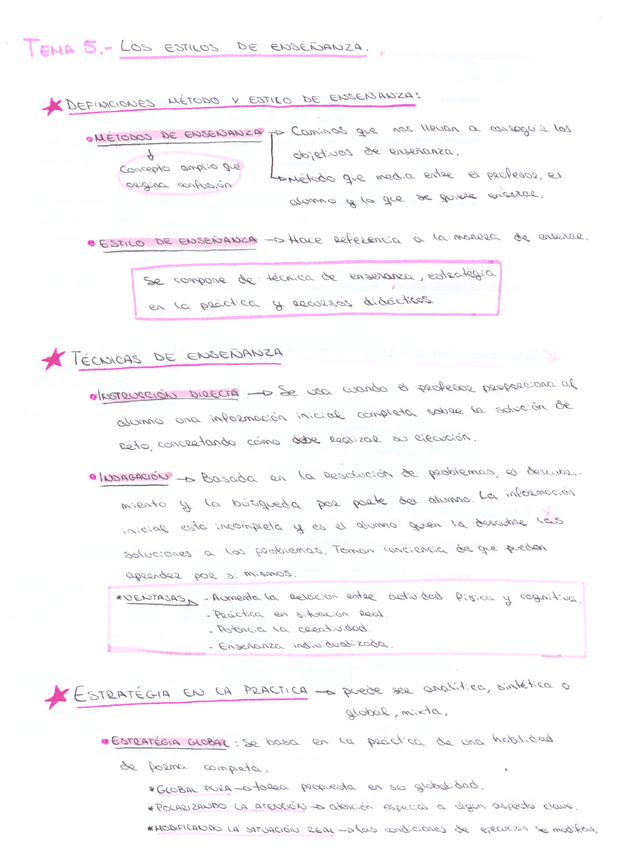 TEMA 5.- LOS ESTILOS DE ENSEÑANZA.
DEFINICIONES MÉTODO Y ESTILO DE ENSEÑANZA:
MÉTODOS DE ENSEÑANZA → Caminos que nos llevan a conseguir los
objetivos de enseñanza.
Concepto amplio que
origina confusión
Método que media entre el profesor, el
alumno y lo que se quiere enseñar.
ESTILO DE ENSEÑANZA → Hace referencia a la manera de enseñar.
Se compone de: técnica de enseñanza, estratégia
en la práctica y recursos didácticos
TÉCNICAS DE ENSEÑANZA
INSTRUCCIÓN DIRECTA → Se usa cuando el profesor proporciona al
alumno una información inicial completa sobre la solución de
reto, concretando cómo debe realizar su ejecución.
INDAGACIÓN → Basada en la resolución de problemas, el descubri-
miento y la búsqueda por parte del alumno. La información
inicial esta incompleta y es el alumno quien la descubre las
soluciones a los problemas. Toman conciencia de que pueden
aprender por si mismos.
*VENTAJAS → - Aumenta la relación entre actividad física y cognitiva.
- Práctica en situación real.
- Potencia la creatividad.
- Enseñanza individualizada.
ESTRATÉGIA EN LA PRACTICA → puede ser analítica, sintética o
global, mixta.
ESTRATÉGIA GLOBAL: Se basa en la práctica de una habilidad
de forma completa.
*GLOBAL PURA → tarea propuesta en su globalidad.
*POLARIZANDO LA ATENCIÓN → atención especial a algun aspecto clave.
*MODIFICANDO LA SITUACIÓN REAL → las condiciones de ejecución se modifican.